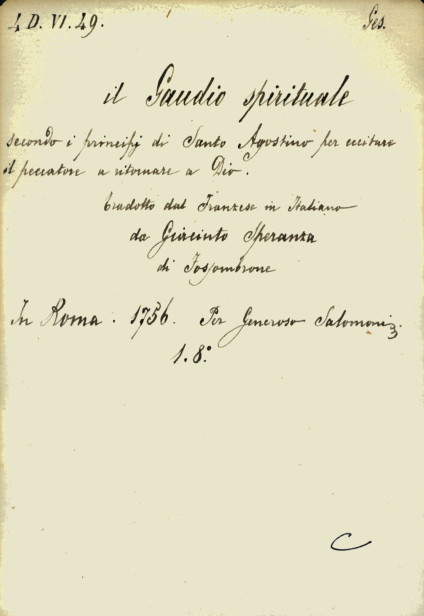 4 D. VI. 49. Ges.
il Gaudio spirituale
secondo i principj di Santo Agostino per eccitare
il peccatore a ritornare a Dio.
Tradotto dal Franzese in Italiano
da Giacinto Speranza
di Fossombrone
In Roma. 1756. Per Generoso Salomoni.
1. 8.°
C